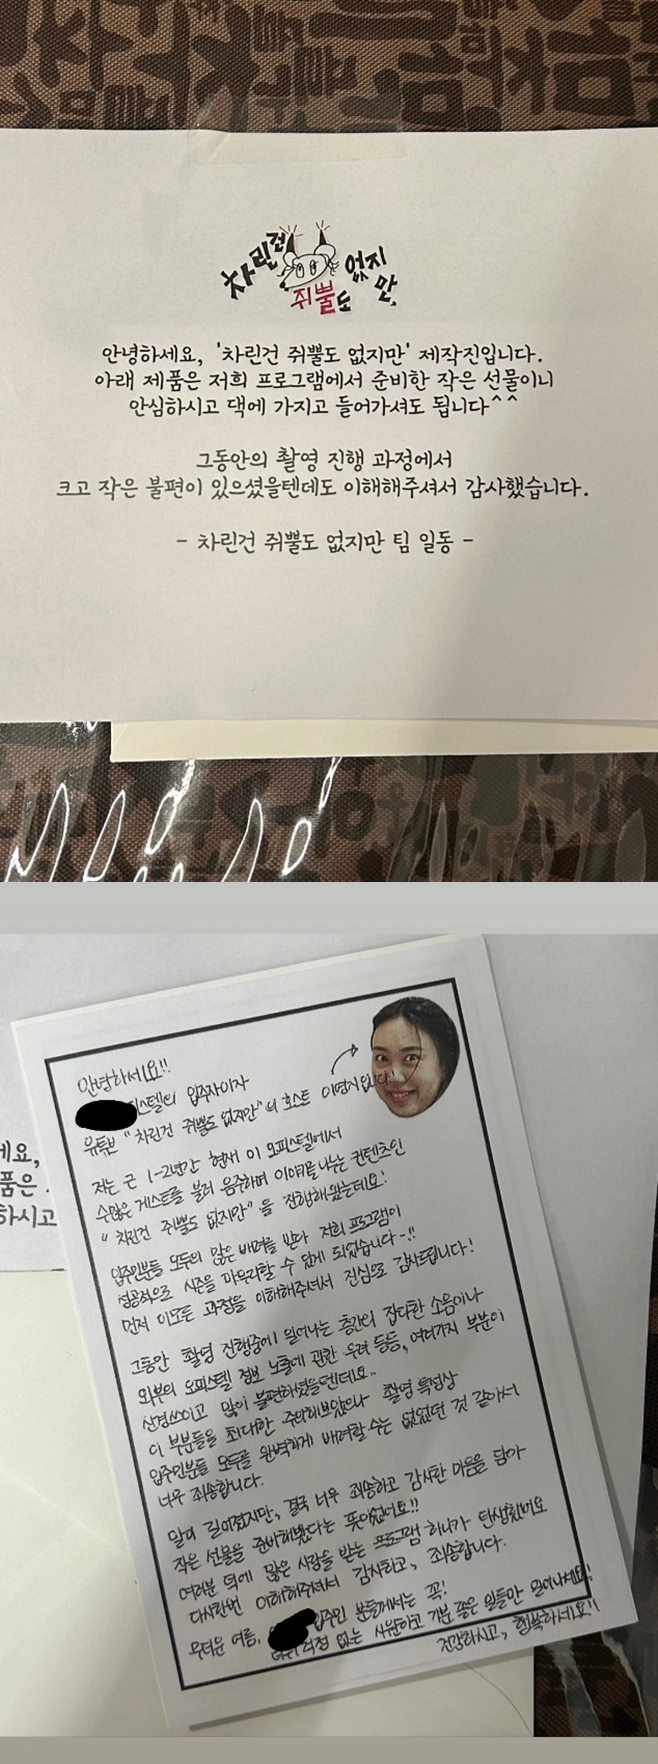 차린건 쥐뿔도 없지만,
안녕하세요, '차린건 쥐뿔도 없지만' 제작진입니다.
아래 제품은 저희 프로그램에서 준비한 작은 선물이니
안심하시고 댁에 가지고 들어가셔도 됩니다^^
그동안의 촬영 진행 과정에서
크고 작은 불편이 있으셨을텐데도 이해해주셔서 감사했습니다.
- 차린건 쥐뿔도 없지만 팀 일동 -
안녕하세요!!
피스텔의 입주자이자
유튜브 "차린건 쥐뿔도 없지만"의 호스트 이영지입니다!
저는 근 1-2년간 현재 이 오피스텔에서
수많은 게스트를 불러 음주하며 이야기를 나누는 컨텐츠인
"차린건 쥐뿔도 없지만"을 진행해왔는데요!
입주민분들 모두의 많은 배려를 받아 저희 프로그램이
성공적으로 시즌을 마무리할 수 있게 되었습니다-!!
먼저 이 모든 과정을 이해해주셔서 진심으로 감사드립니다!
그동안 촬영 진행중에 일어나는 층간의 잡다한 소음이나
외부의 오피스텔 정보 노출에 관한 우려 등등, 여러가지 부분이
신경쓰이고 많이 불편하셨을텐데요..
이 부분들을 최대한 주의해보았으나 촬영 특성상
입주민분들 모두를 완벽하게 배려할 수는 없었던 것 같아서
너무 죄송합니다.
말이 길어졌지만, 결국 너무 죄송하고 감사한 마음을 담아
작은 선물을 준비해봤다는 뜻이었어요!!
여러분 덕에 많은 사랑을 받는 프로그램 하나가 탄생했어요
다시한번 이해해주셔서 감사하고, 죄송합니다.
무더운 여름, 입주민 분들께서는 꼭!
걱정 없는 시원하고 기분 좋은 일들만 일어나세요!
건강하시고, 행복하세요!!
세요,
품은
하시고